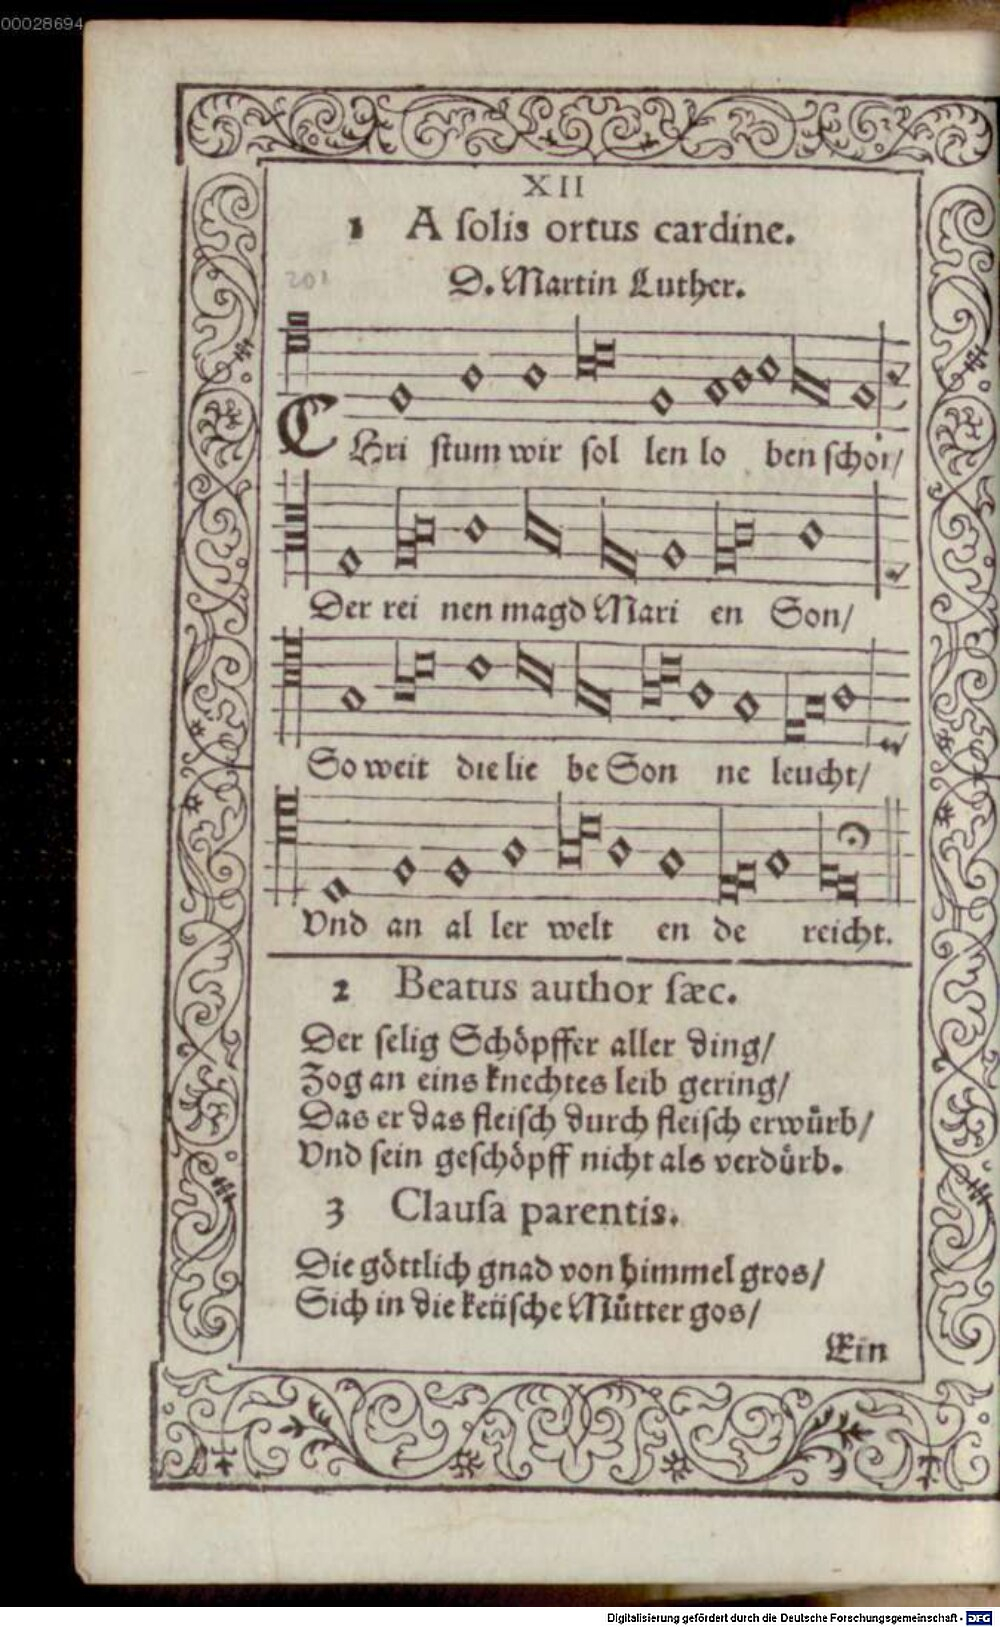 00028694
XII
1 A ſolis ortus cardine.
201
D. Martin Luther.
CHri ſtum wir ſol len lo ben ſchon/
Der rei nen magd Mari en Son/
So weit die lie be Son ne leucht/
Vnd an al ler welt en de reicht.
2 Beatus author ſæc.
Der ſelig Schöpffer aller ding/
Zog an eins knechtes leib gering/
Das er das fleiſch durch fleiſch erwürb/
Vnd ſein geſchöpff nicht als verdürb.
3 Clauſa parentis.
Die göttlich gnad von himmel gros/
Sich in die keüſche Mütter gos/
Ein
Digitalisierung gefördert durch die Deutsche Forschungsgemeinschaft - DFG